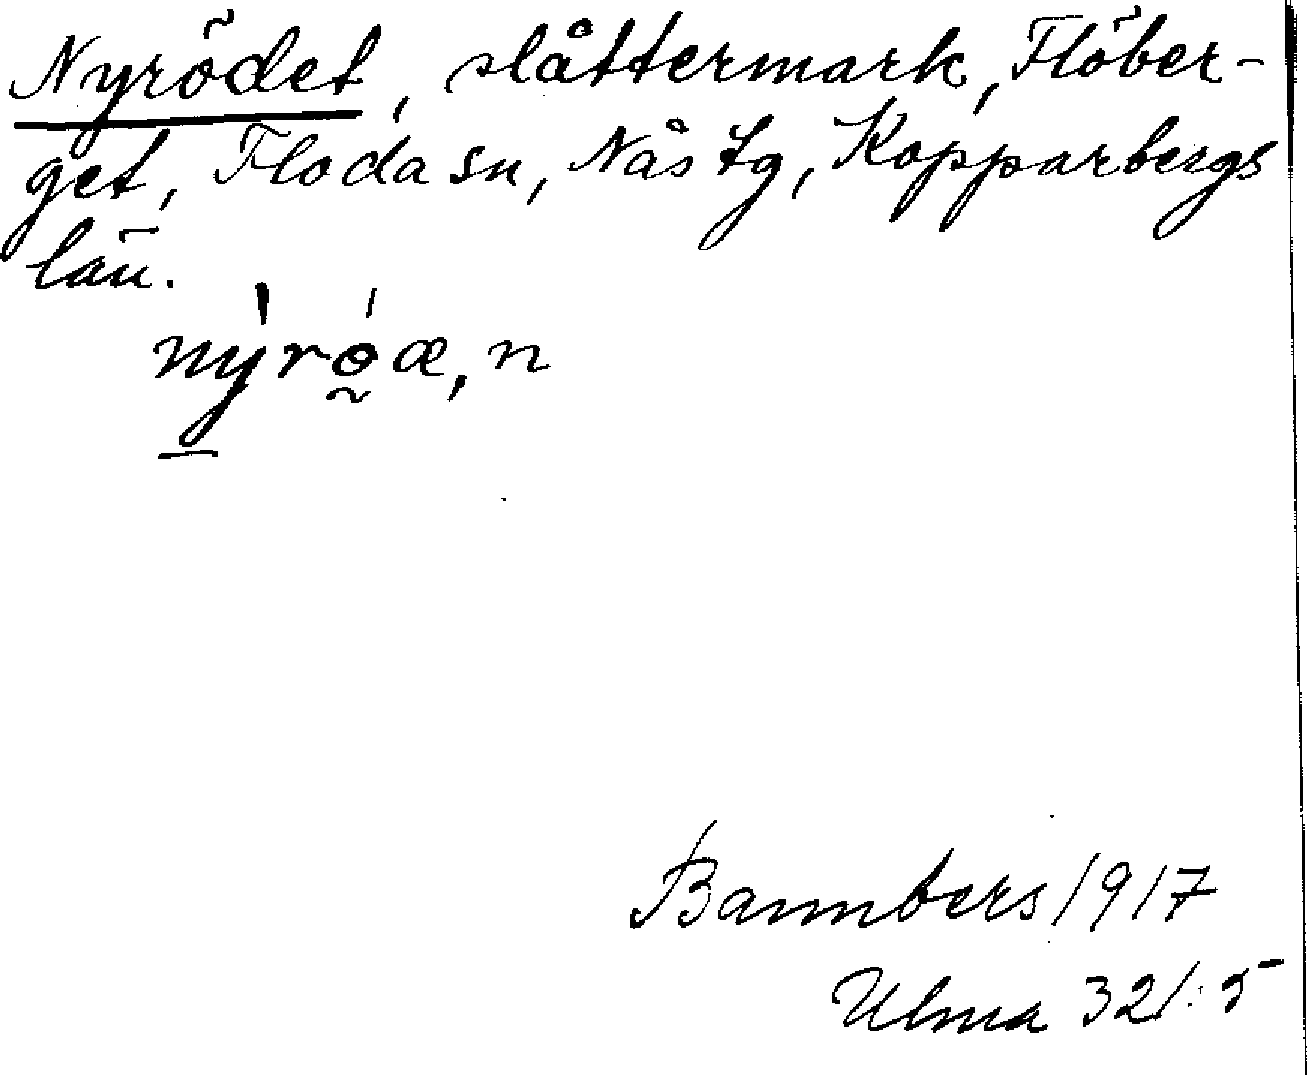 Nyrödet, slåttermark, Flöber-
get, Floda sn, Nås tg, Kopparbergs
län.
nyröæ, n
Bannbers 1917
Ulma 321:5